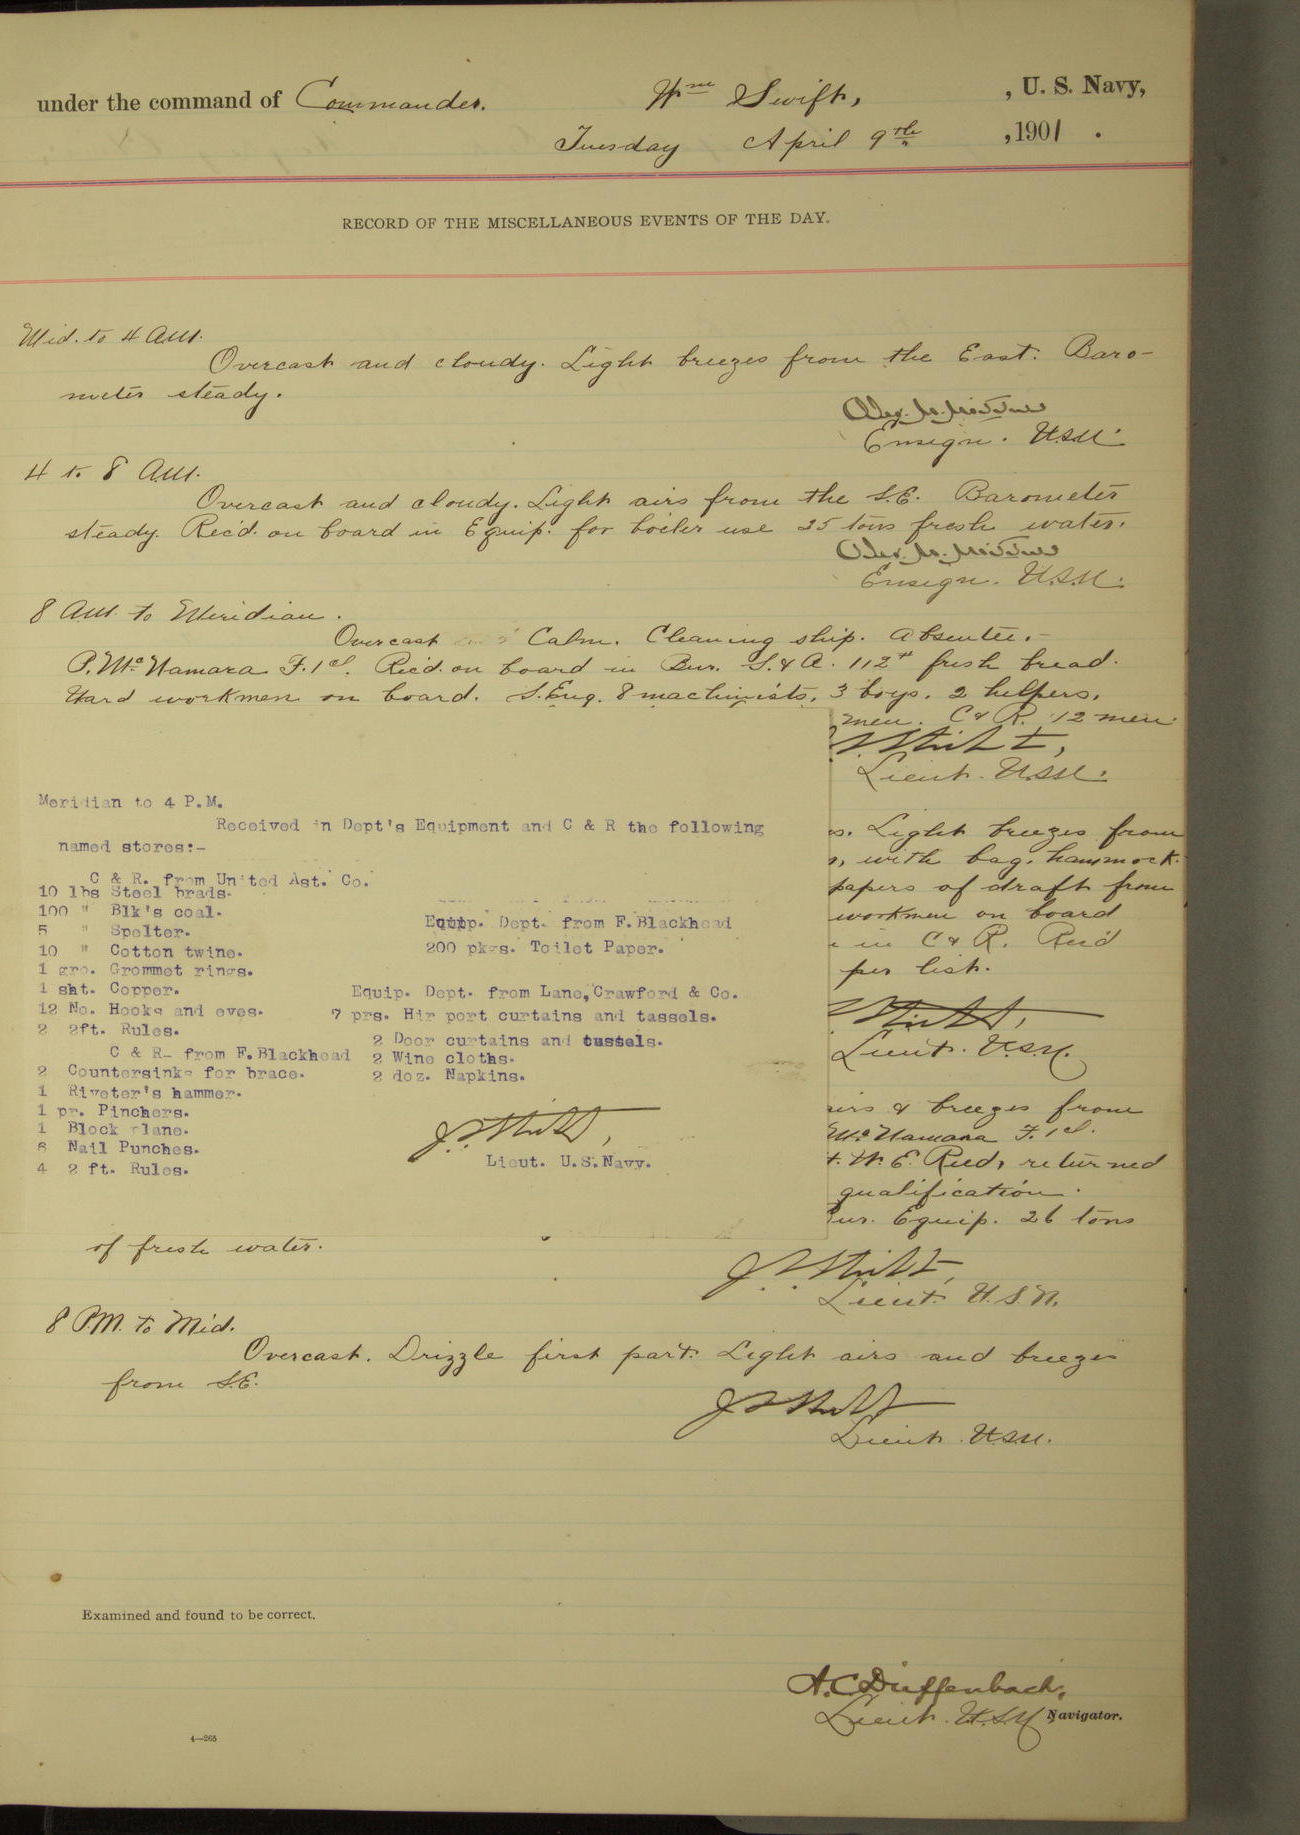 under the command of Commander. Wm Swift, , U. S. Navy,
Tuesday April 9th , 1901 .
RECORD OF THE MISCELLANEOUS EVENTS OF THE DAY.
Mid. to 4 A.M.
Overcast and cloudy. Light breezes from the East. Baro-
meter steady.
Ensign. U.S.N.
4 to 8 A.M.
Overcast and cloudy. Light airs from the S.E. Barometer
steady. Rec'd. on board in Equip. for boiler use 25 tons fresh water.
Ensign. U.S.N.
8 A.M. to Meridian.
Overcast and Calm. Cleaning ship. Absentee.-
P. McNamara F.1cl. Rec'd. on board in Bur. S.&A. 112# fresh bread.
Yard workmen on board. S.Eng. 8 machinists, 3 boys, 2 helpers,
men. C & R. 12 men
Lieut. U.S.N.
Meridian to 4 P.M.
Received in Dept's Equipment and C & R the following
named stores:-
C & R. from United Ast. Co.
10 lbs Steel brads.
100 " Blk's coal.
5 " Spelter.
10 " Cotton twine.
1 gro. Grommet rings.
1 sht. Copper.
12 No. Hooks and eyes.
2 2ft. Rules.
C & R- from F.Blackhead
2 Countersinks for brace.
1 Riveter's hammer.
1 pr. Pinchers.
1 Block plane.
6 Nail Punches.
4 2 ft. Rules.
Equip. Dept. from F.Blackhead
200 pkgs. Toilet Paper.
Equip. Dept. from Lane,Crawford & Co.
7 prs. Hir port curtains and tassels.
2 Door curtains and tassels.
2 Wine cloths.
2 doz. Napkins.
Lieut. U.S.Navy.
s. Light breezes from
, with bag, hammock
papers of draft from
workmen on board
in C & R. Rec'd
per list.
Lieut. U.S.N.
airs & breezes from
McNamara F.1cl.
t. W. E. Reed, returned
qualification.
Bur. Equip. 26 tons
of fresh water.
Lieut. U.S.N.
8 P.M. to Mid.
Overcast. Drizzle first part. Light airs and breezes
from S.E.
Lieut. U.S.N.
Examined and found to be correct.
A.C. Diffenbach,
Lieut. U.S.N. Navigator.
4—265